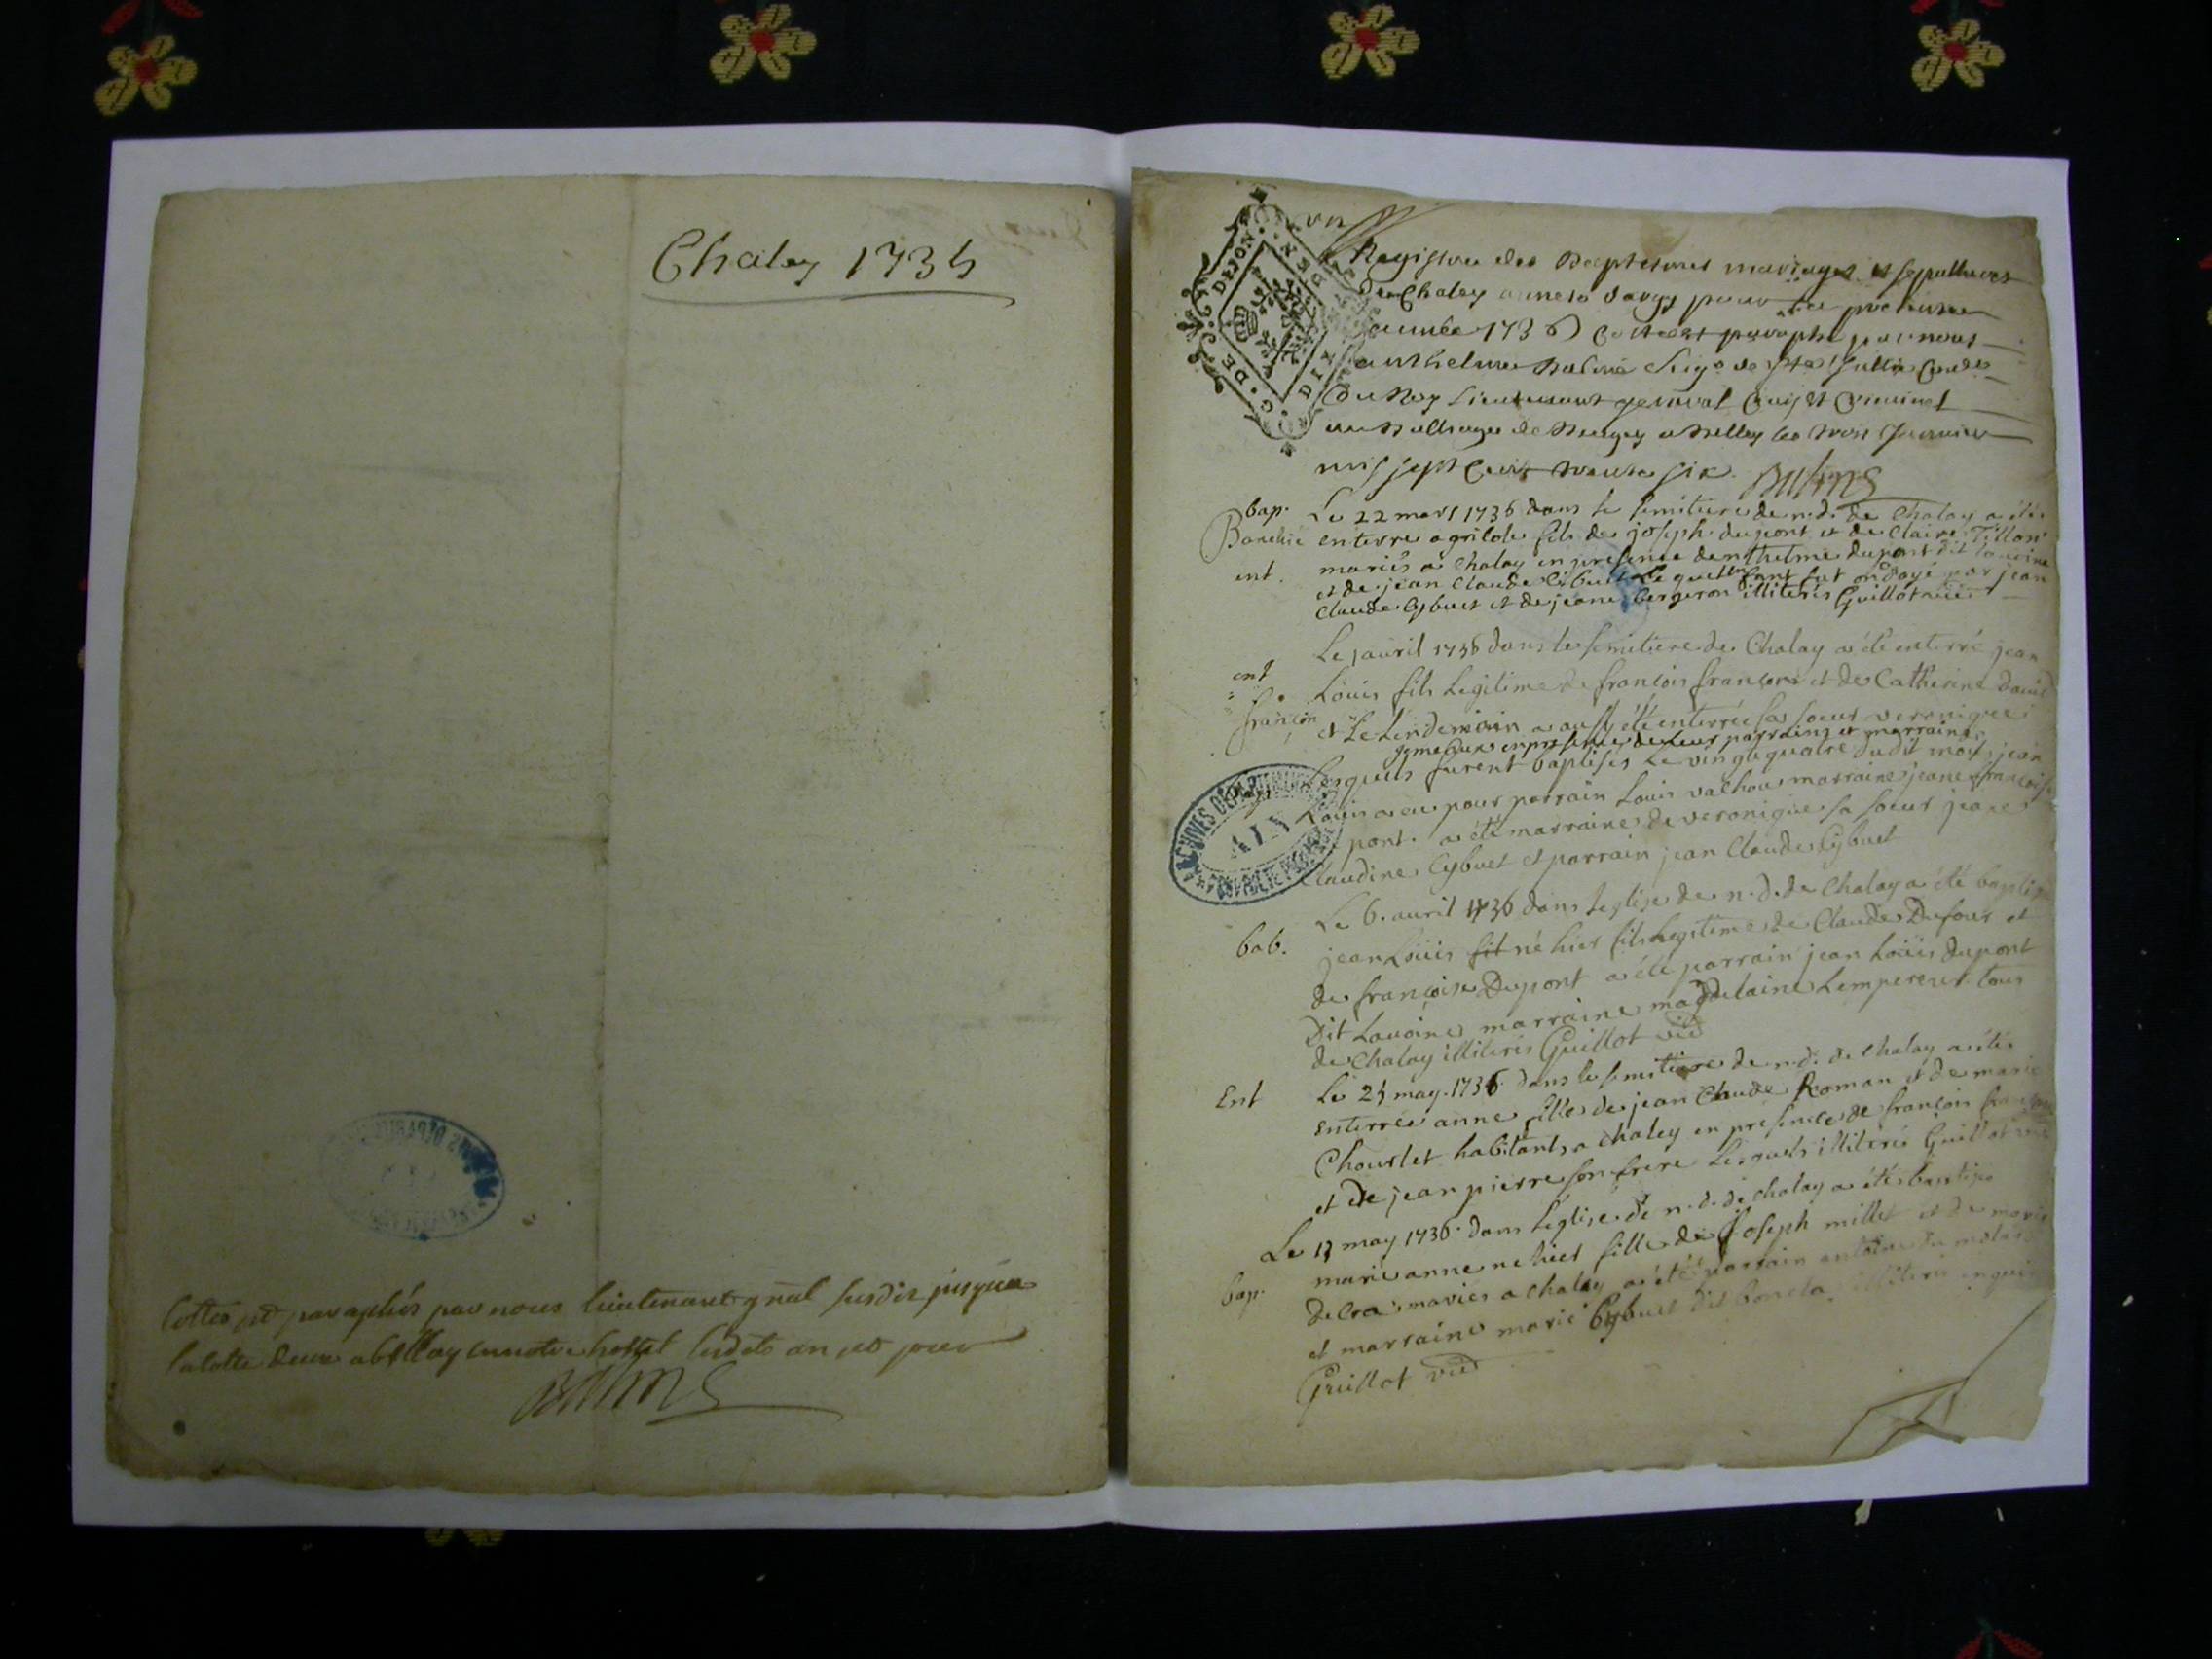 Chaley 1735
Cottés et paraphés par nous lieutenant gnal susdit jusqua
la cotte deux a Bellay en notre hostel lesdits an et jour
un
G. DE DIJON
Registre des Baptesmes mariages et sepultures
de Chaley annexe pour la presente
année 1736 Cotté et paraphé par nous
anthelme Balme Seigr de Ste Jullie Coner
Du Roy Lieutenant general Civil et Criminel
au Balliage de Bugey a Belley le trois Janvier
mil sept Cent trente six. Balme
bap. Le 22 mars 1736 dans le simitiere de n. d. de Chalay a été
enterre fils de joseph dupont et de Claire Tillon
ent. mariés a Chalay en presence danthelme dupont dit
et de jean Claude Cybuet le quel enfant fut ondoyé par jean
Claude Cybuet et de jeane bergeron illiterés Guillot vic
Le 1 avril 1736 dans le simitiere de Chalay a été enterré jean
ent
Louis fils Legitime de françois françon et de Catherine David
françon et Le Lendemain a aussy été enterrée sa soeur veronique
gemeaux en presence de Leur parrains et marraines
Lesquels furent baptisés Le vingtquatre dudit mois jean
Louis a eu pour parrain Louis vachou marraine jeane françoise
pont. a été marraine de veronique sa soeur jeane
Claudine Cybuet et parrain jean Claude Cybuet
ARCHIVES DÉPARTEMENTALES
AIN
Le 6. avril 1736 dans Leglise de n. d. de Chalay a été baptisé
bab. jean Loüis fit né hier fils Legitime de Claude Dufour et
de françoise Dupont a été parrain jean Loüis dupont
Dit Lavoine marraine magdelaine Lempereur tous
de Chalay illiterés Guillot vic
Ent Le 25 may. 1736 dans le simitiere de n. d. de Chalay a été
enterrée anne fille de jean Claude Roman et de marie
Chourlet habitants a Chaley en presence de françois françon
et de jean pierre son frere Lesquels illiterés Guillot vic
Le 13 may 1736. dans Leglise de n. d. de Chalay a été baptise
marie anne ne hier fille de Joseph millet et de marie
bap. decra mariés a Chalay a été parrain antoine du molard
et marraine marie Cybuet dit illiteré enquis
Guillot vic